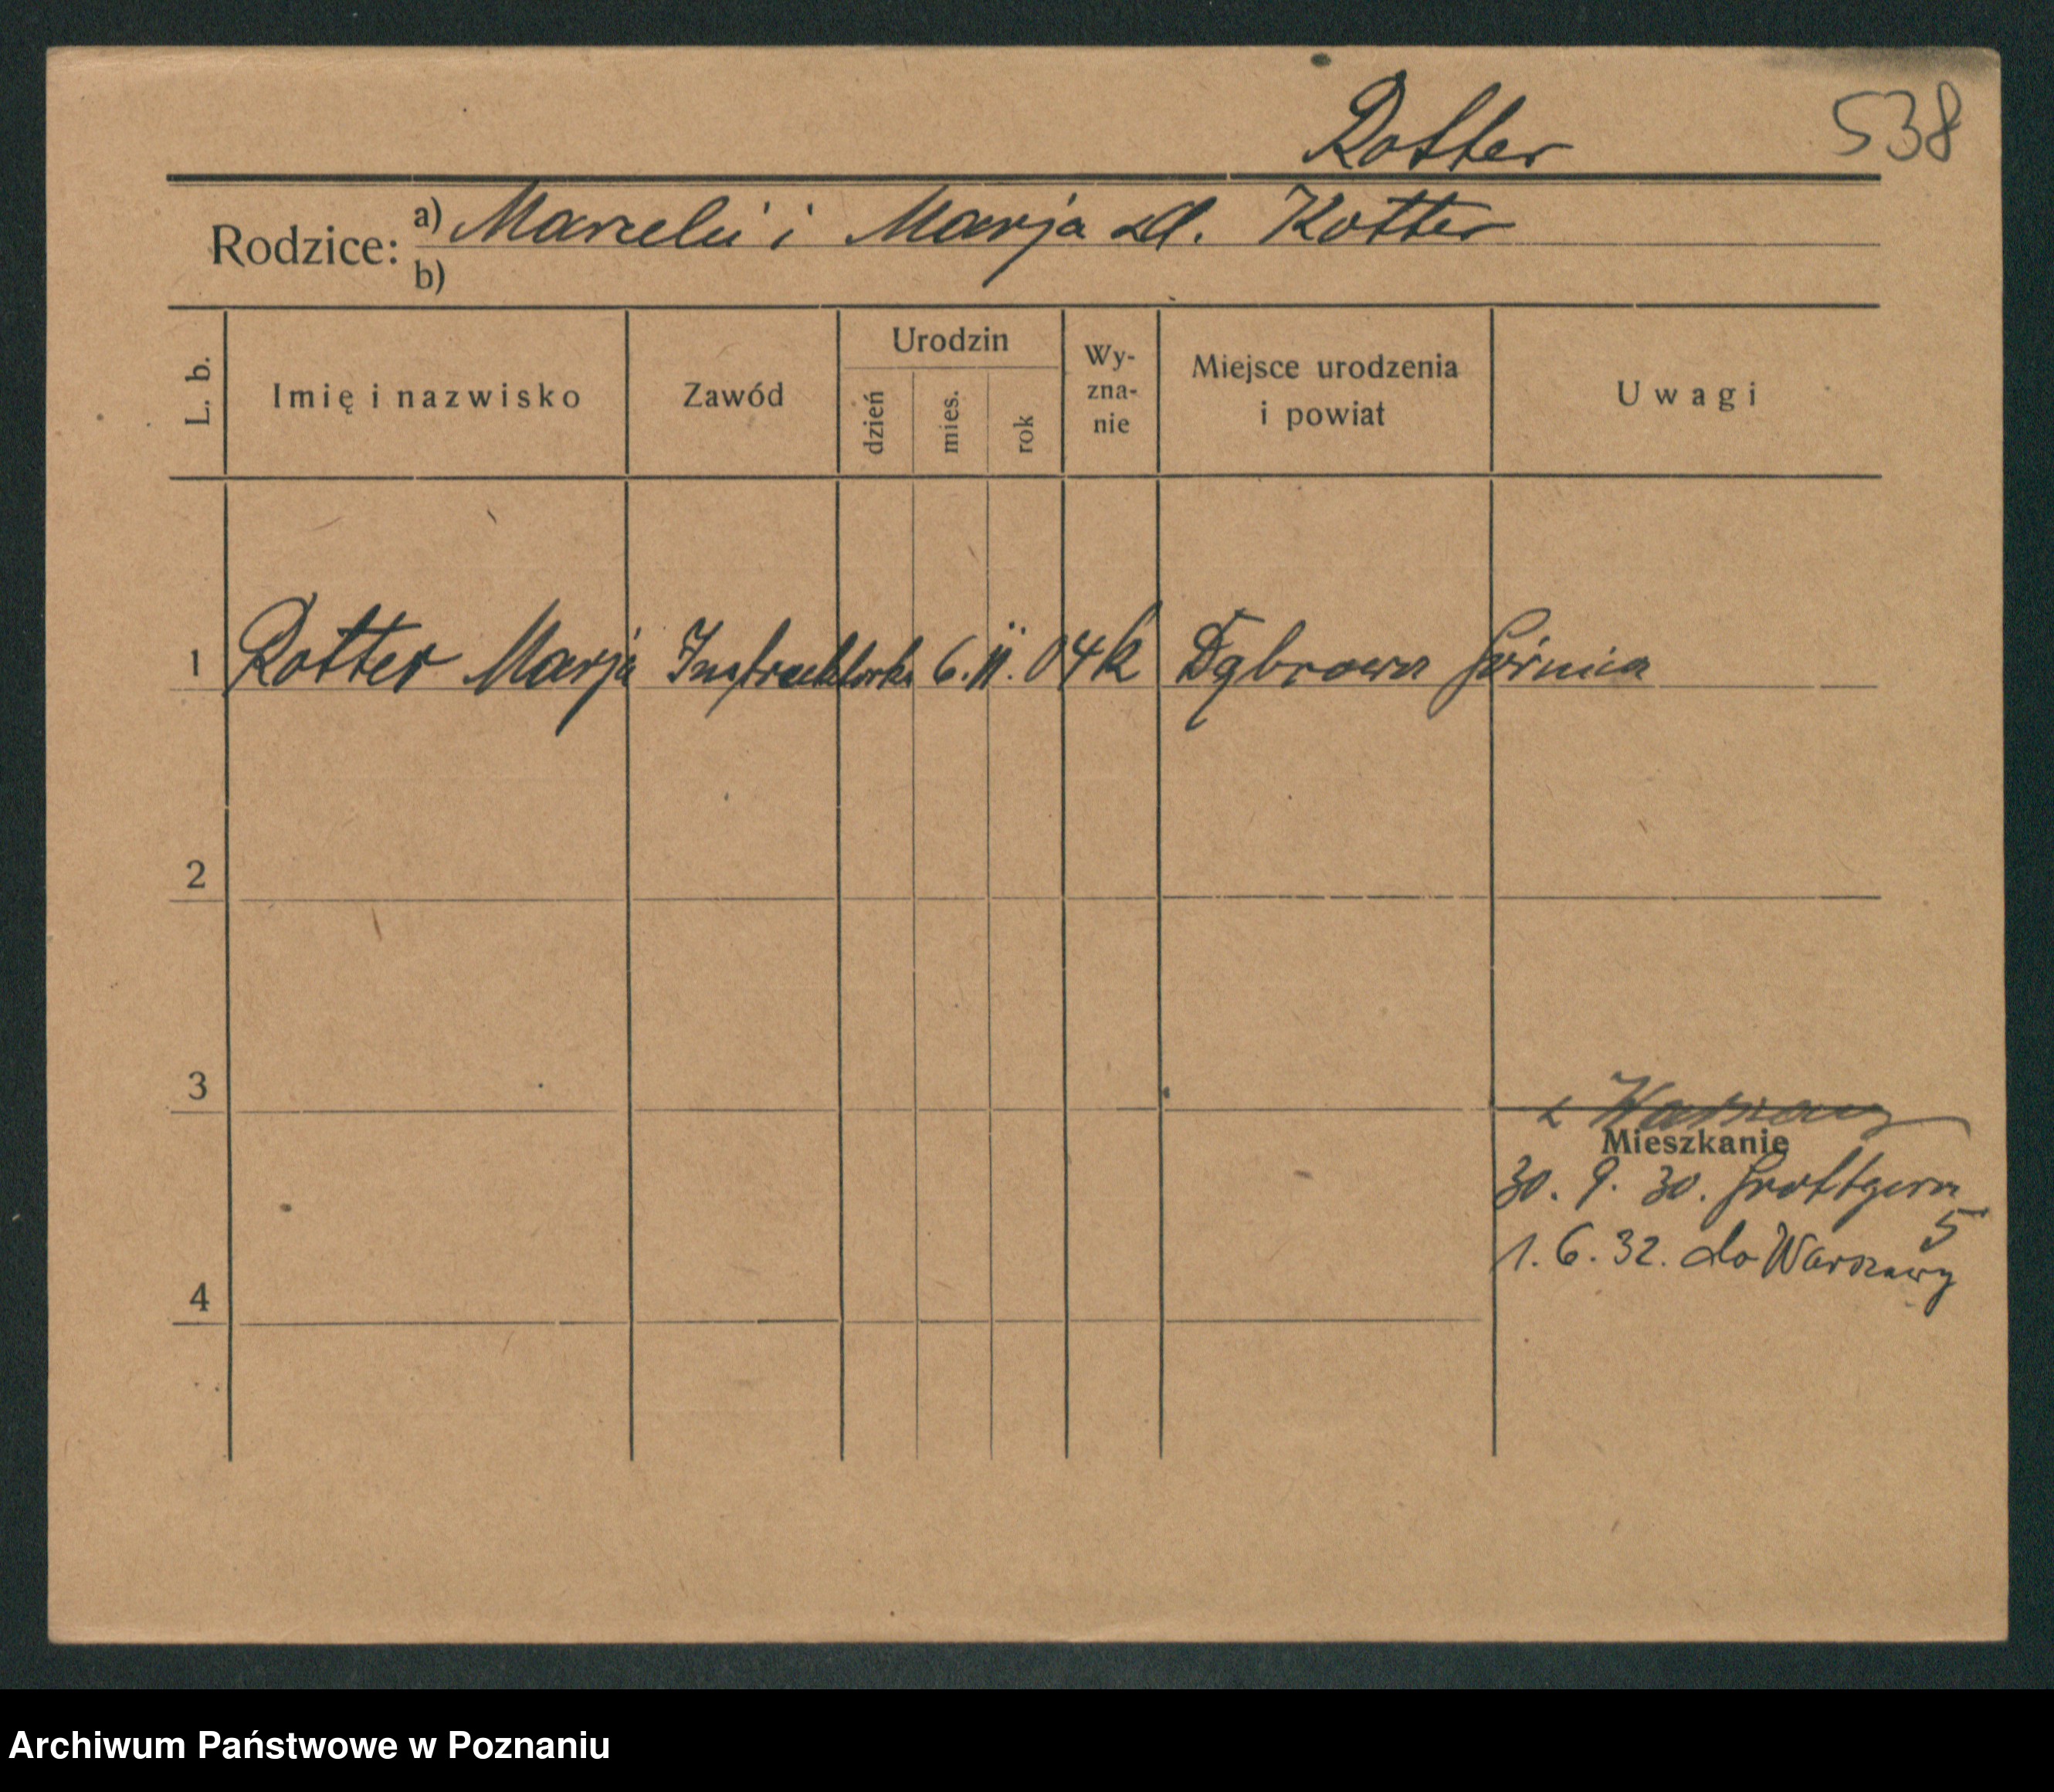 Rotter
538
Rodzice: a) Marceli i Marja zd. Kotter
b)
L. b.
Imię i nazwisko
Zawód
Urodzin
dzień
mies.
rok
Wy-
zna-
nie
Miejsce urodzenia
i powiat
Uwagi
1 Rotter Marja Instruktorka 6. II. 04 k Dąbrowa Górnica
2
3
z Warszawy
Mieszkanie
30. 9. 30. Grottgera
5
1. 6. 32. do Warszawy
4
Archiwum Państwowe w Poznaniu